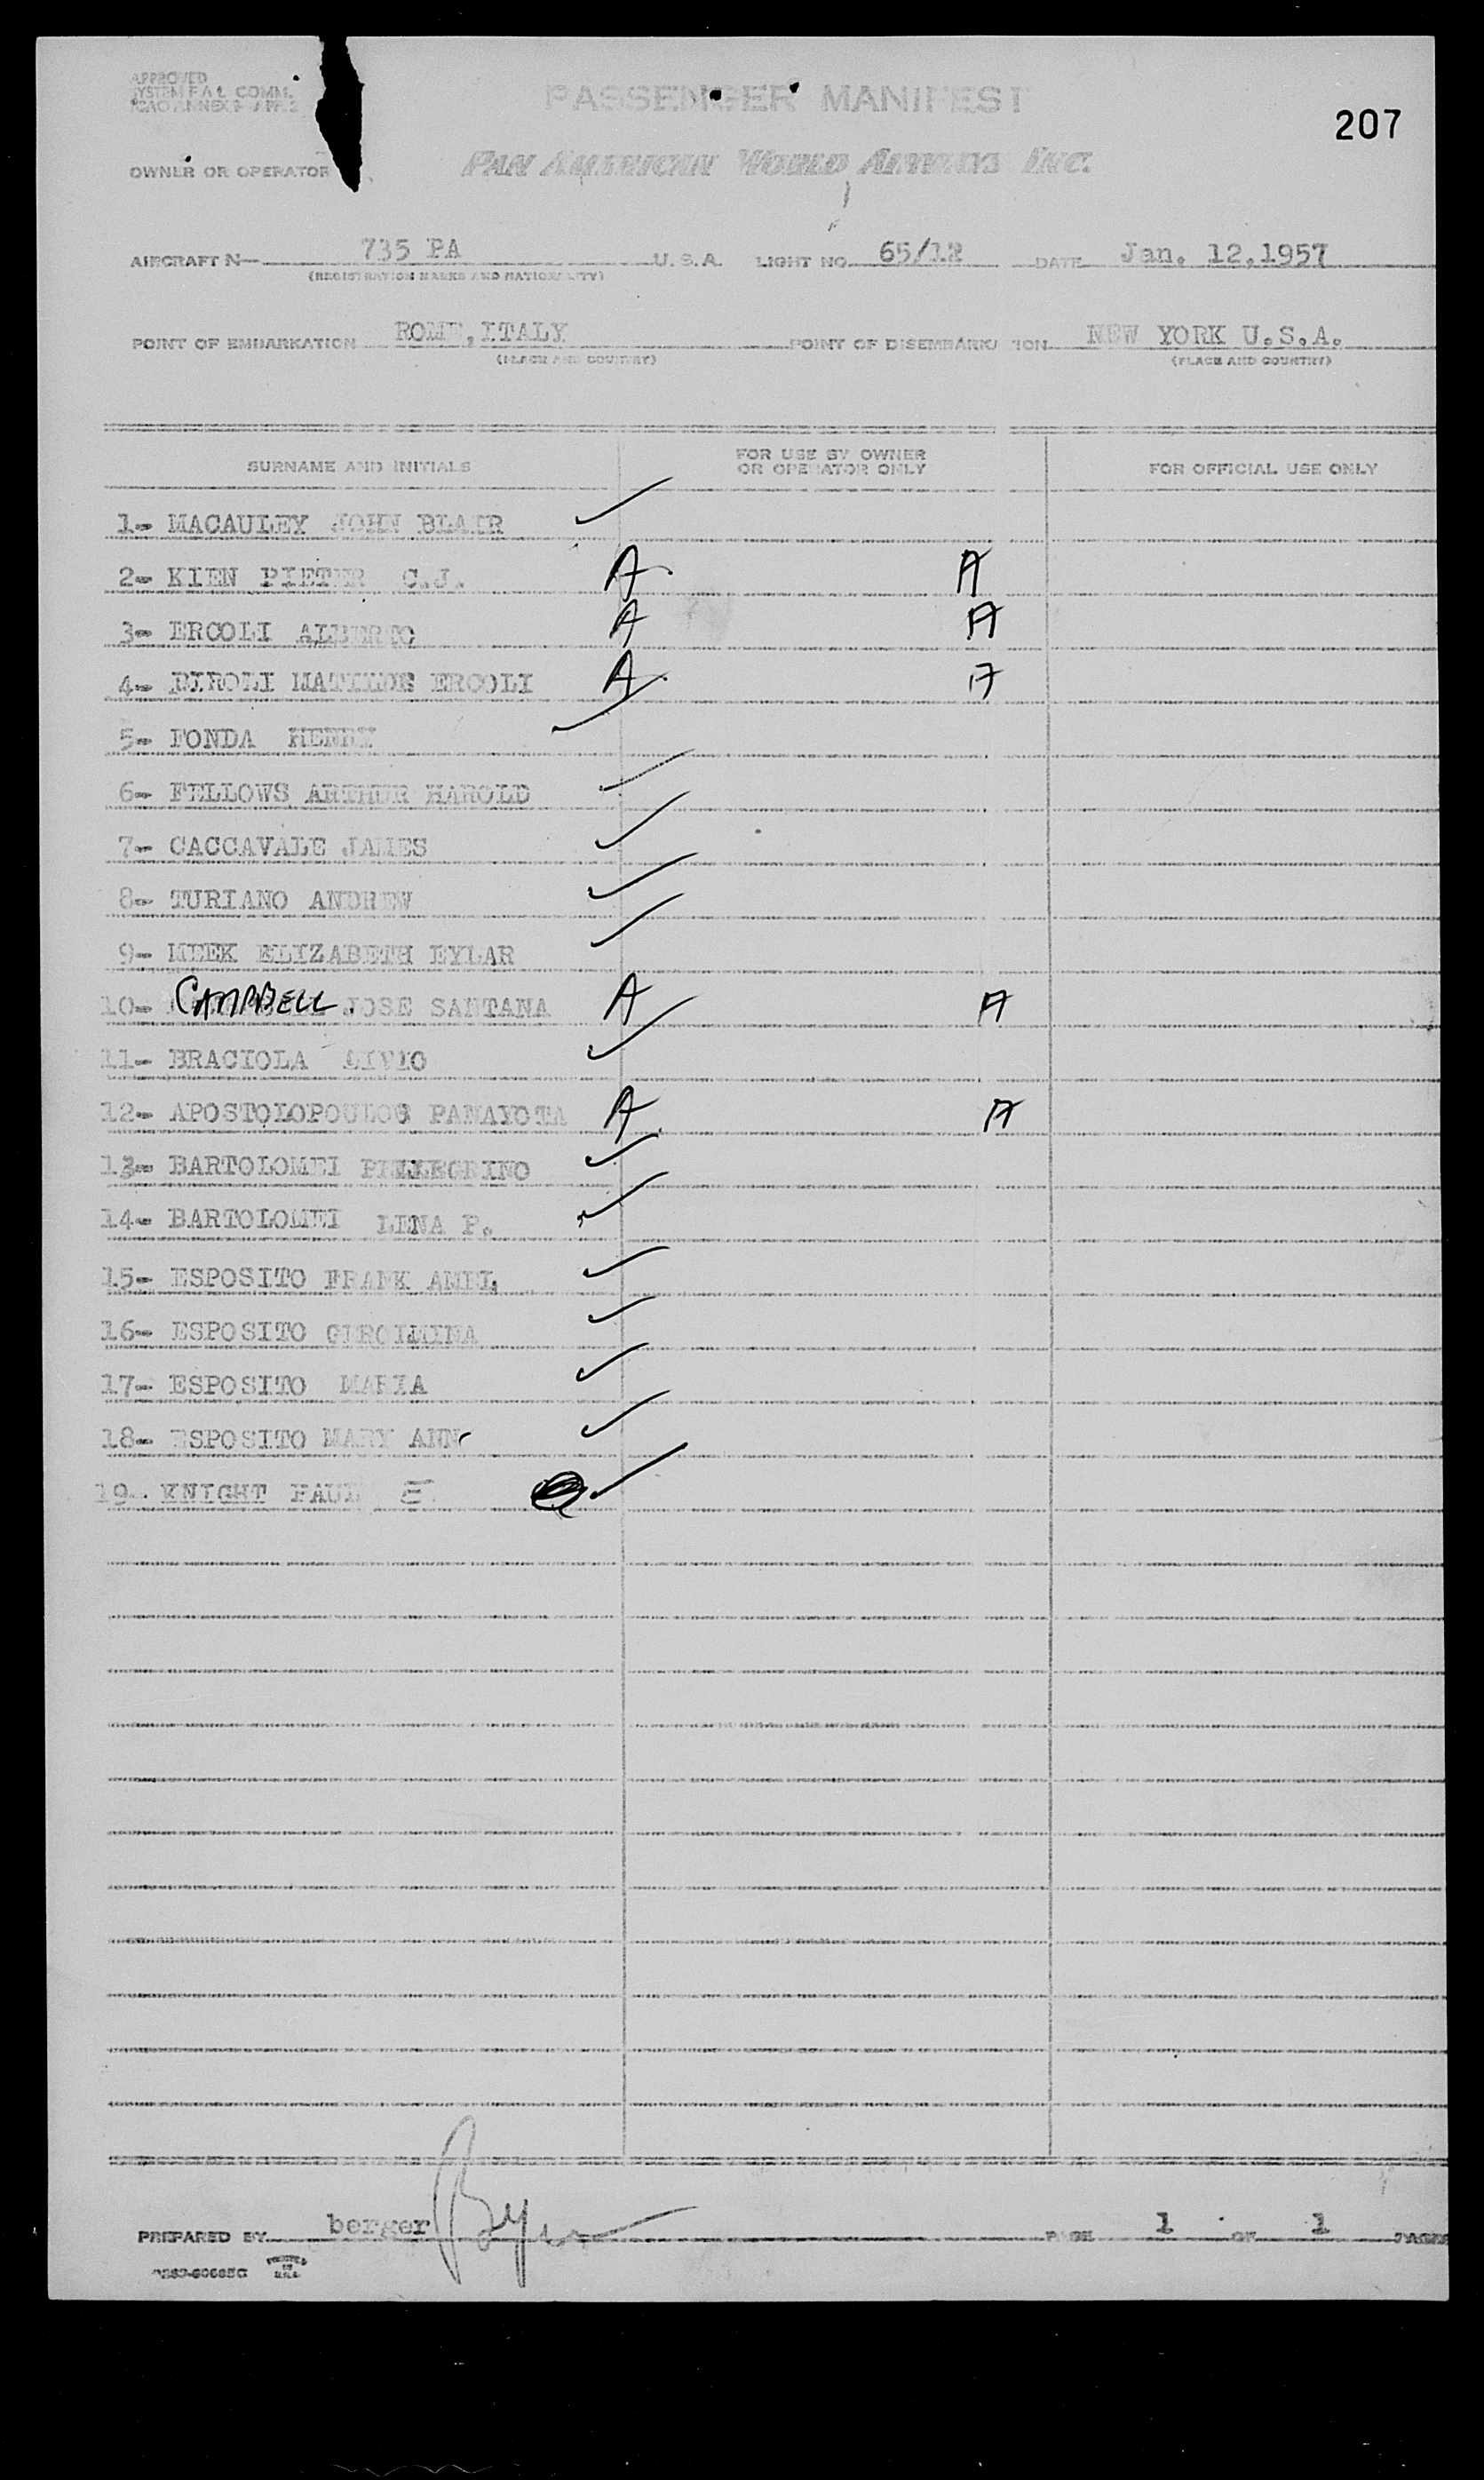 APPROVED
SYSTEM F A L COMM.
ICAO ANNEX 9- APP. 2
PASSENGER MANIFEST
207
OWNER OR OPERATOR
PAN AMERICAN WORLD AIRWAYS INC.
AIRCRAFT N— 735 PA U. S. A. LIGHT NO. 65/12 DATE Jan. 12,1957
(REGISTRATION MARKS AND NATIONALITY)
POINT OF EMBARKATION ROME,ITALY POINT OF DISEMBARKATION NEW YORK U.S.A.
(PLACE AND COUNTRY) (PLACE AND COUNTRY)
SURNAME AND INITIALS FOR USE BY OWNER OR OPERATOR ONLY FOR OFFICIAL USE ONLY
1- MACAULEY JOHN BLAIR
2- KIEN PIETER C.J. A A
3- ERCOLI ALBERTO A A
4- PIROLI MATILDE ERCOLI A A
5- FONDA HENRY
6- FELLOWS ARTHUR HAROLD
7- CACCAVALE JAMES
8- TURIANO ANDREW
9- MEEK ELIZABETH EYLAR
10- CAMPBELL JOSE SANTANA A A
11- BRACIOLA LIVIO
12- APOSTOLOPOULOS PANAYOTA A A
13- BARTOLOMEI PELLEGRINO
14- BARTOLOMEI LINA P.
15- ESPOSITO FRANK
16- ESPOSITO
17- ESPOSITO MARIA
18- ESPOSITO MARY ANN
19- KNIGHT PAUL E.
PREPARED BY berger PAGE 1 OF 1 PAGES